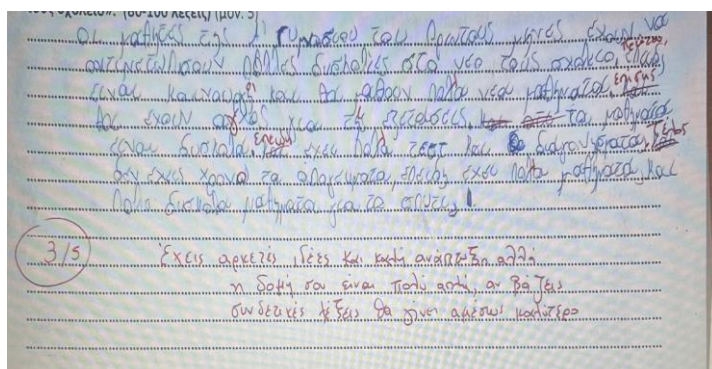 σχολείο». (80-100 λέξεις) (μον. 5)
Οι μαθητές της Α' Γυμνασίου τους πρώτους μήνες έχουν να
αντιμετωπίσουν πολλές δυσκολίες στο νέο τους σχολείο, Πρώτον, επειδή
είναι καινούρ και θα μάθουν πολλά νέα μαθήματα, επίσης
θα έχουν άγχος για τις εξετάσεις, τα μαθήματα
είναι δύσκολα, επειδή έχει πολλά τεστ και διαγωνίσματα, τέλος
δεν έχεις χρόνο τα απογεύματα, επειδή έχει πολλά μαθήματα, και
πολλά δύσκολα μαθήματα για το σπίτι.
3/5
Έχεις αρκετές ιδέες και καλή ανάπτυξη αλλά
η δομή σου είναι πολύ απλή, αν βάζεις
συνδετικές λέξεις θα γίνει αμέσως καλύτερο